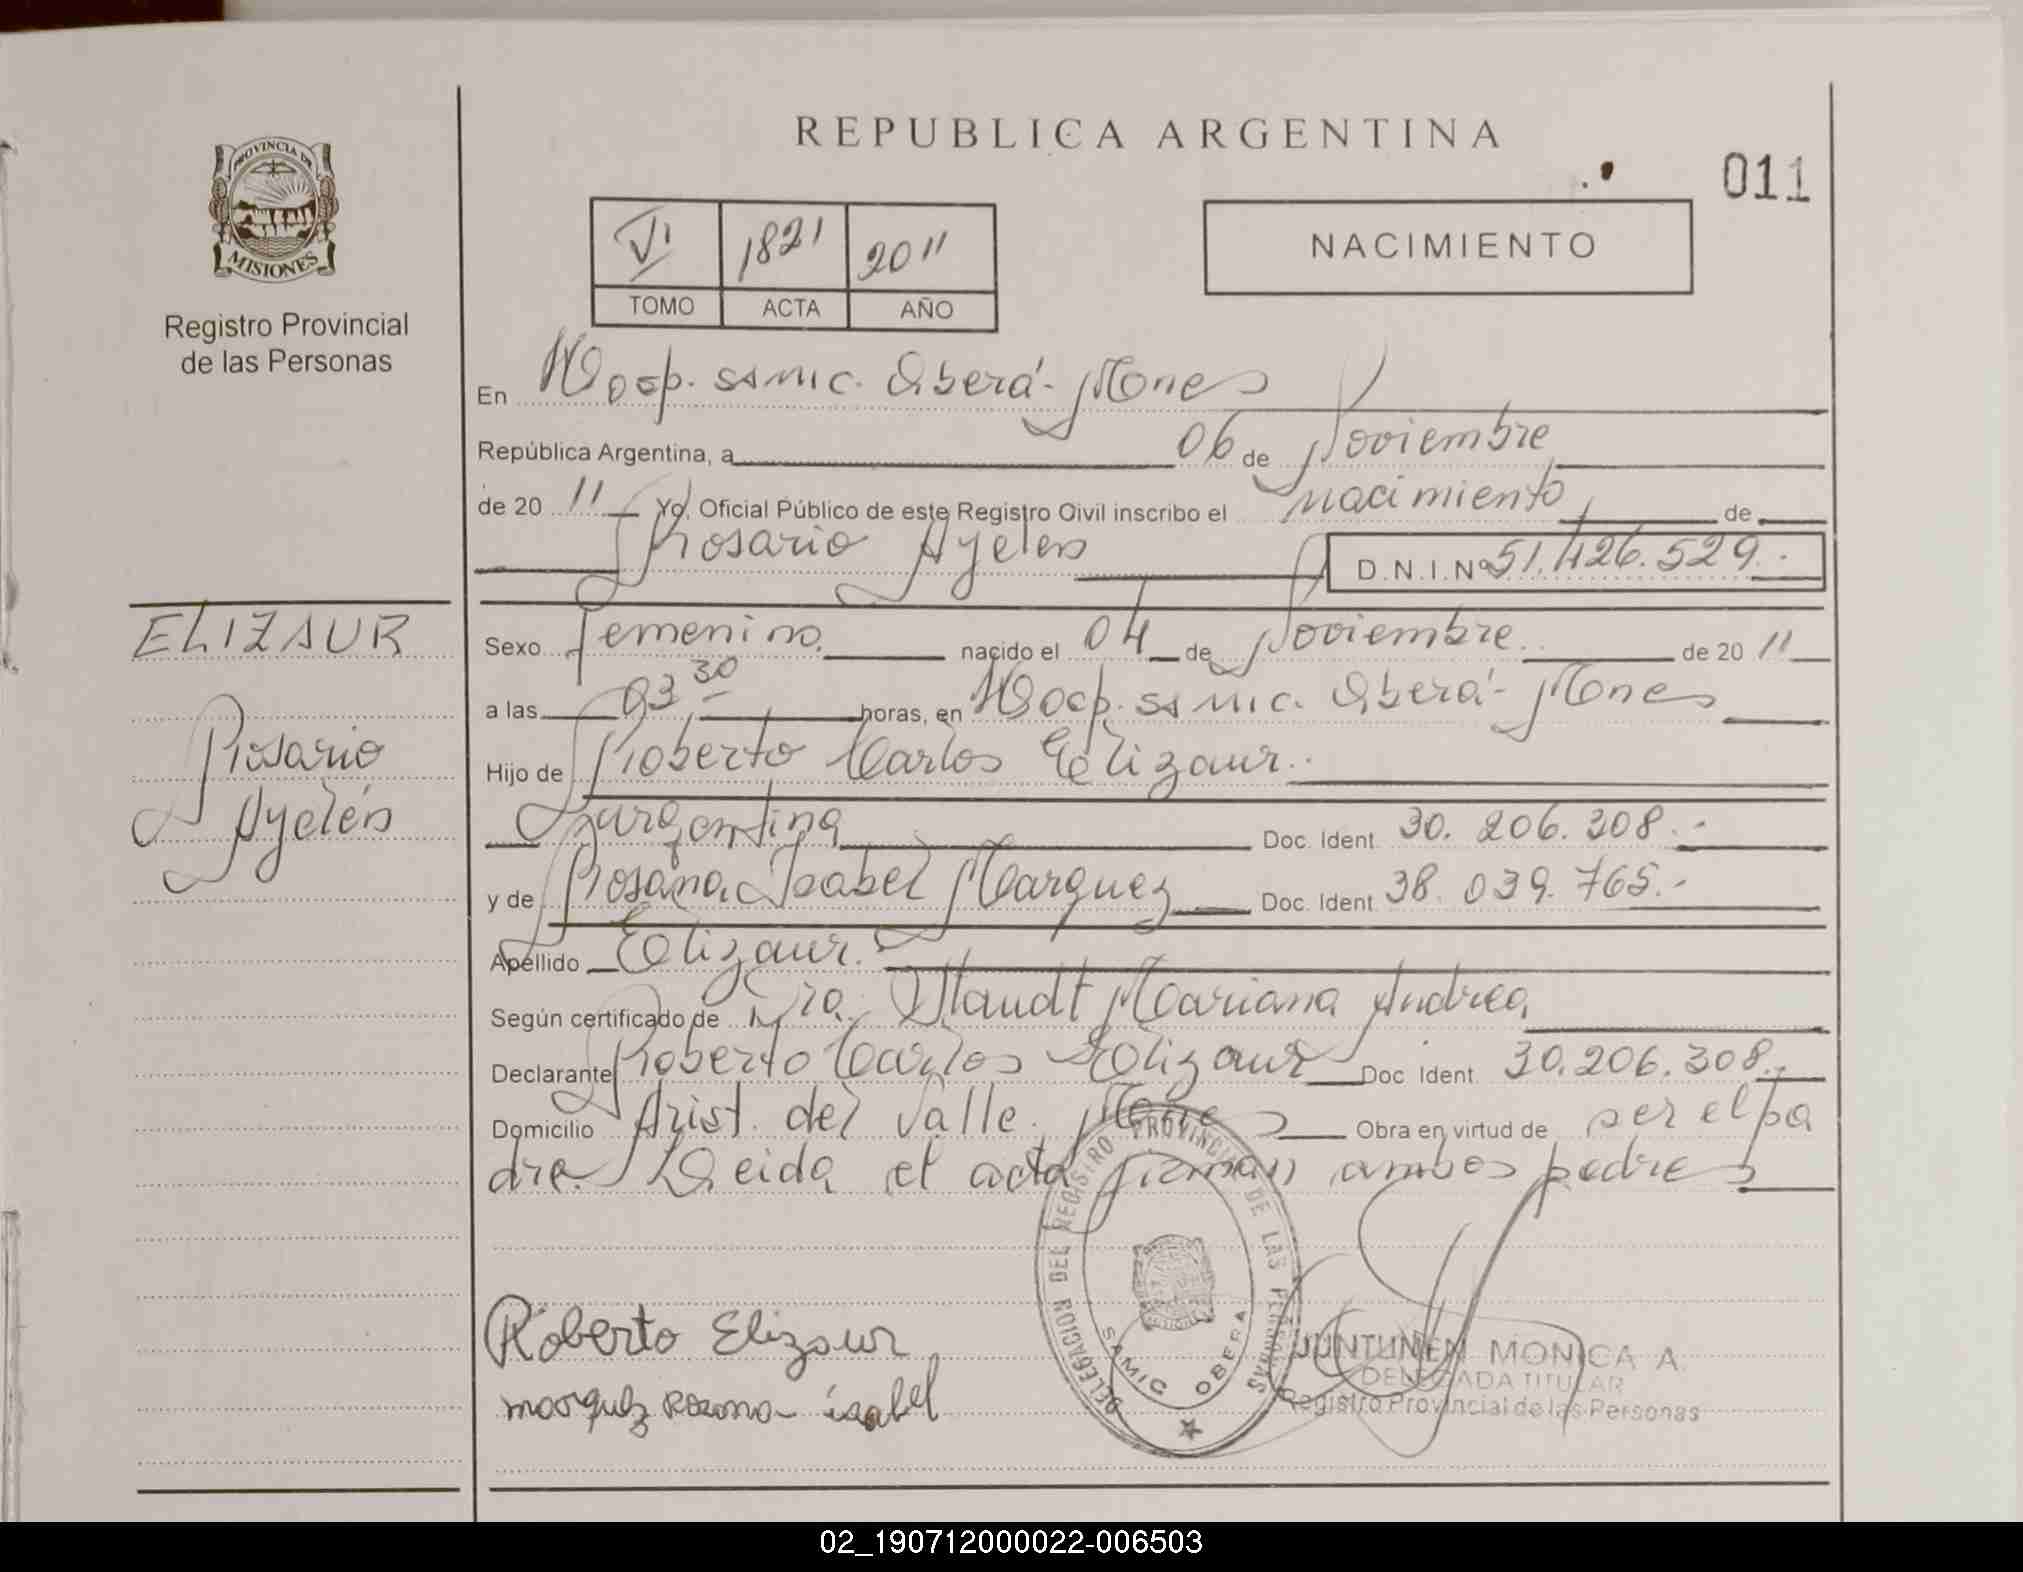 REPUBLICA ARGENTINA
011
PROVINCIA DE
MISIONES
Registro Provincial
de las Personas
VI 1821 2011
TOMO ACTA AÑO
NACIMIENTO
En Hosp. SAMIC. Oberá - Mnes
República Argentina, a 06 de Noviembre
de 20 11 Yo, Oficial Público de este Registro Civil inscribo el nacimiento de
Rosario Ayelén D.N.I.Nº 51.426.529.-
ELIZAUR
Rosario
Ayelén
Sexo femenino. nacido el 04 de Noviembre. de 20 11
a las 03 30 horas, en Hosp. SAMIC. Oberá - Mnes
Hijo de Roberto Carlos Elizaur.
Argentina Doc. Ident 30.206.308.-
y de Rosana Isabel Marquez Doc. Ident 38.039.765.-
Apellido Elizaur.
Según certificado de Dra. Staudt Mariana Andrea
Declarante Roberto Carlos Elizaur Doc Ident 30.206.308.-
Domicilio Arist. del Valle. Mnes Obra en virtud de ser el pa
dre. Leida el acta firman ambos padres
DELEGACION DEL REGISTRO PROVINCIAL DE LAS PERSONAS
SAMIC OBERA
Roberto Elizaur
marquez Rosana isabel
JUNTUNEN MONICA A.
DELEGADA TITULAR
Registro Provincial de las Personas
02_190712000022-006503